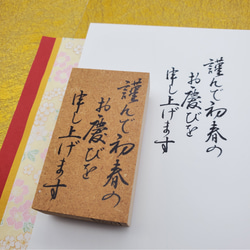 謹んで初春の
お慶びを
申し上げます
謹んで初春の
お慶びを
申し上げます